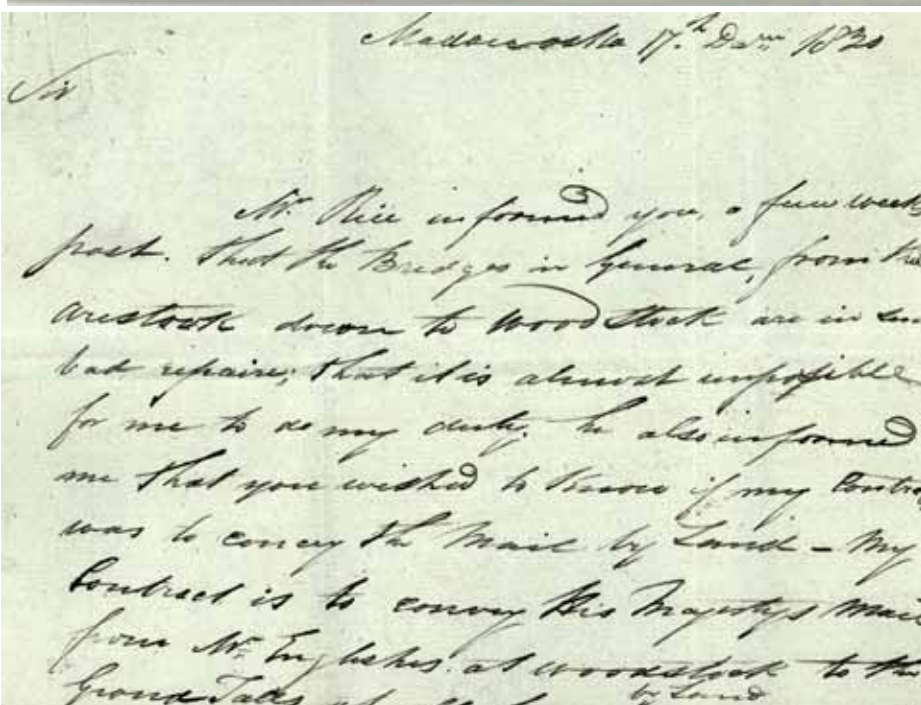 Madawaska 17th Decm 1830
Sir
Mr Rice informed you, a few week
past. that the Bridges in General, from the
arestook down to Wood Stock are in such
bad repairs; that it is almost impossible
for me to do my duty. he also informed
me that you wished to know if my Contra
was to convey the Mail by Land – My
Contract is to convey His Majestys Mail
from Mr Englishes at Woodstock to the
by Land
Grand Falls